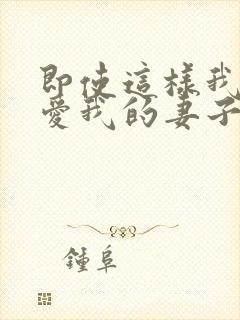 即使這樣我
愛我的妻子
鍾阜